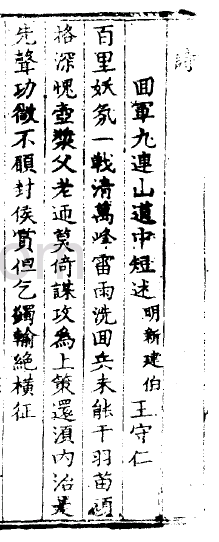 詩
囬軍九連山道中短述 明新建伯 王守仁
百里妖氛一戰清萬峰雷雨洗囬兵未能干羽苗頑
格深愧壺漿父老迎莫倚謀攻為上策還湏内治是
先聲功微不願封侯賞但乞蠲輸絶橫征